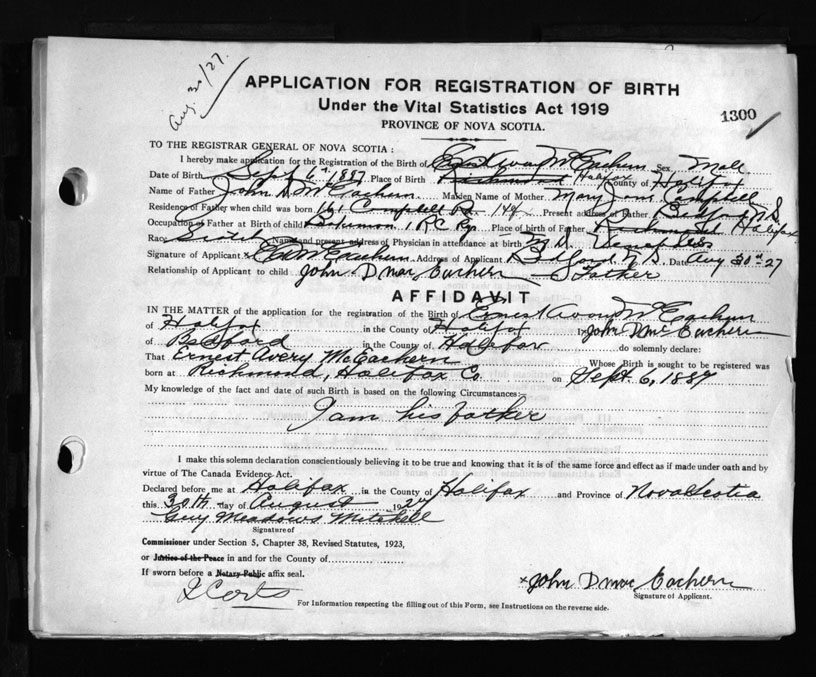 Aug. 30/27.
APPLICATION FOR REGISTRATION OF BIRTH
Under the Vital Statistics Act 1919
1300
PROVINCE OF NOVA SCOTIA.
TO THE REGISTRAR GENERAL OF NOVA SCOTIA :
I hereby make application for the Registration of the Birth of Ernest Avery McEachern Sex Male
Date of Birth Sept 6th 1887 Place of Birth Richmond Halifax County of Halifax
Name of Father John D. McEachern Maiden Name of Mother Mary Jane Campbell
Residence of Father when child was born 161 Campbell Rd. Present address of Father Bedford N S
Occupation of Father at Birth of child I R C Ry Place of birth of Father Richmond Halifax
Race Name and present address of Physician in attendance at birth
Signature of Applicant McEachern Address of Applicant Bedford N S. Date Aug 30th 27
Relationship of Applicant to child John D MacEachern Father
AFFIDAVIT
IN THE MATTER of the application for the registration of the Birth of Ernest Avery McEachern
of Halifax in the County of Halifax I, John D McEachern
of Bedford in the County of Halifax do solemnly declare:
That Ernest Avery McEachern Whose Birth is sought to be registered was
born at Richmond, Halifax Co. on Sept. 6, 1887
My knowledge of the fact and date of such Birth is based on the following Circumstances:
I am his father
I make this solemn declaration conscientiously believing it to be true and knowing that it is of the same force and effect as if made under oath and by
virtue of The Canada Evidence Act.
Declared before me at Halifax in the County of Halifax and Province of Nova Scotia
this 30th day of August 1927
Guy Meadows Mitchell
Signature of
Commissioner under Section 5, Chapter 38, Revised Statutes, 1923,
or Justice of the Peace in and for the County of
If sworn before a Notary Public affix seal.
x John D MacEachern
Signature of Applicant.
For Information respecting the filling out of this Form, see Instructions on the reverse side.